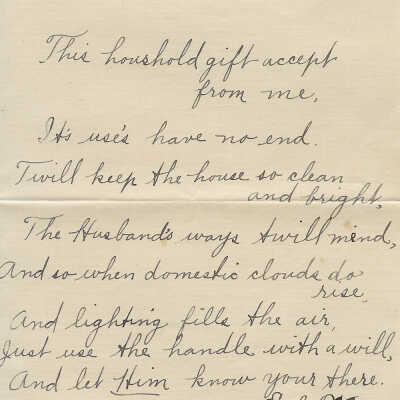 This houshold gift accept
from me,
It's use's have no end.
T'will keep the house so clean
and bright,
The Husband's ways twill mend,
And so when domestic clouds do
rise,
And lighting fills the air,
Just use the handle with a will,
And let Him know your there.